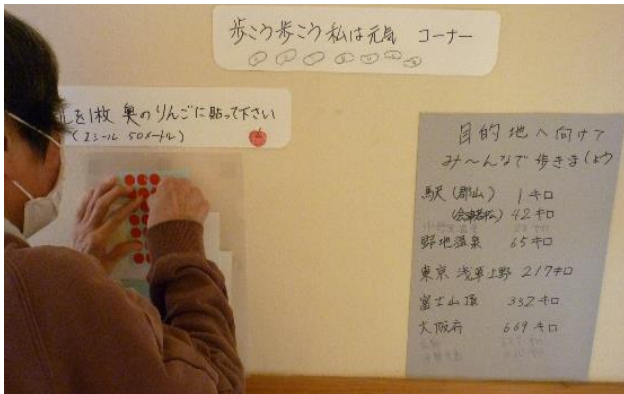 歩こう歩こう私は元気 コーナー
を1枚 奥のりんごに貼って下さい
(1シール 50メートル)
目的地へ向けて
み〜んなで歩きましょう
駅(郡山) 1キロ
(会津若松) 42キロ
野地温泉 65キロ
東京 浅草上野 217キロ
富士山頂 332キロ
大阪府 669キロ